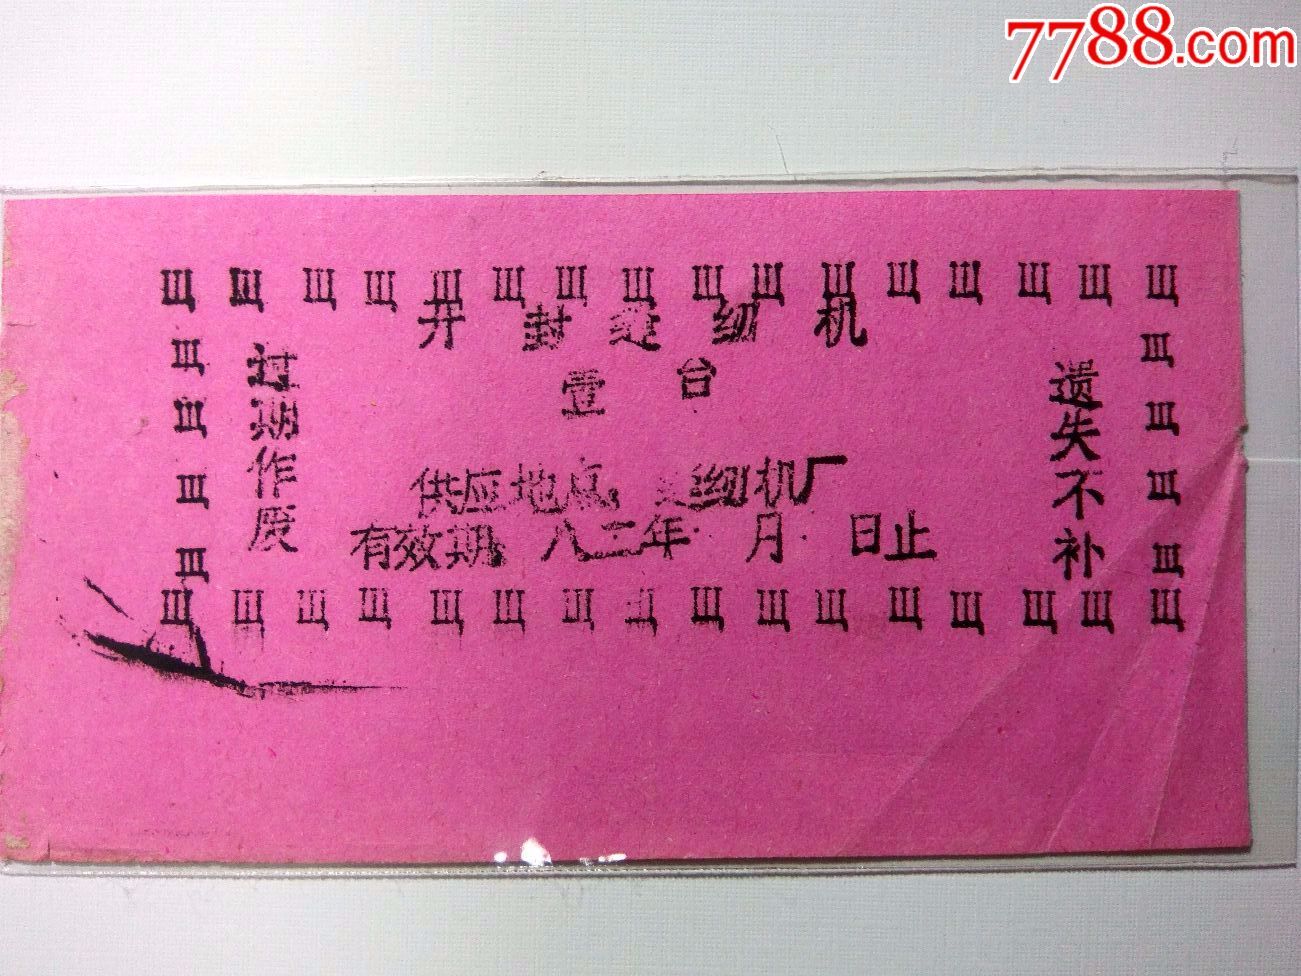 7788.com
开封缝纫机
壹台
过期作废
遗失不补
供应地点 缝纫机厂
有效期 八二年 月 日止